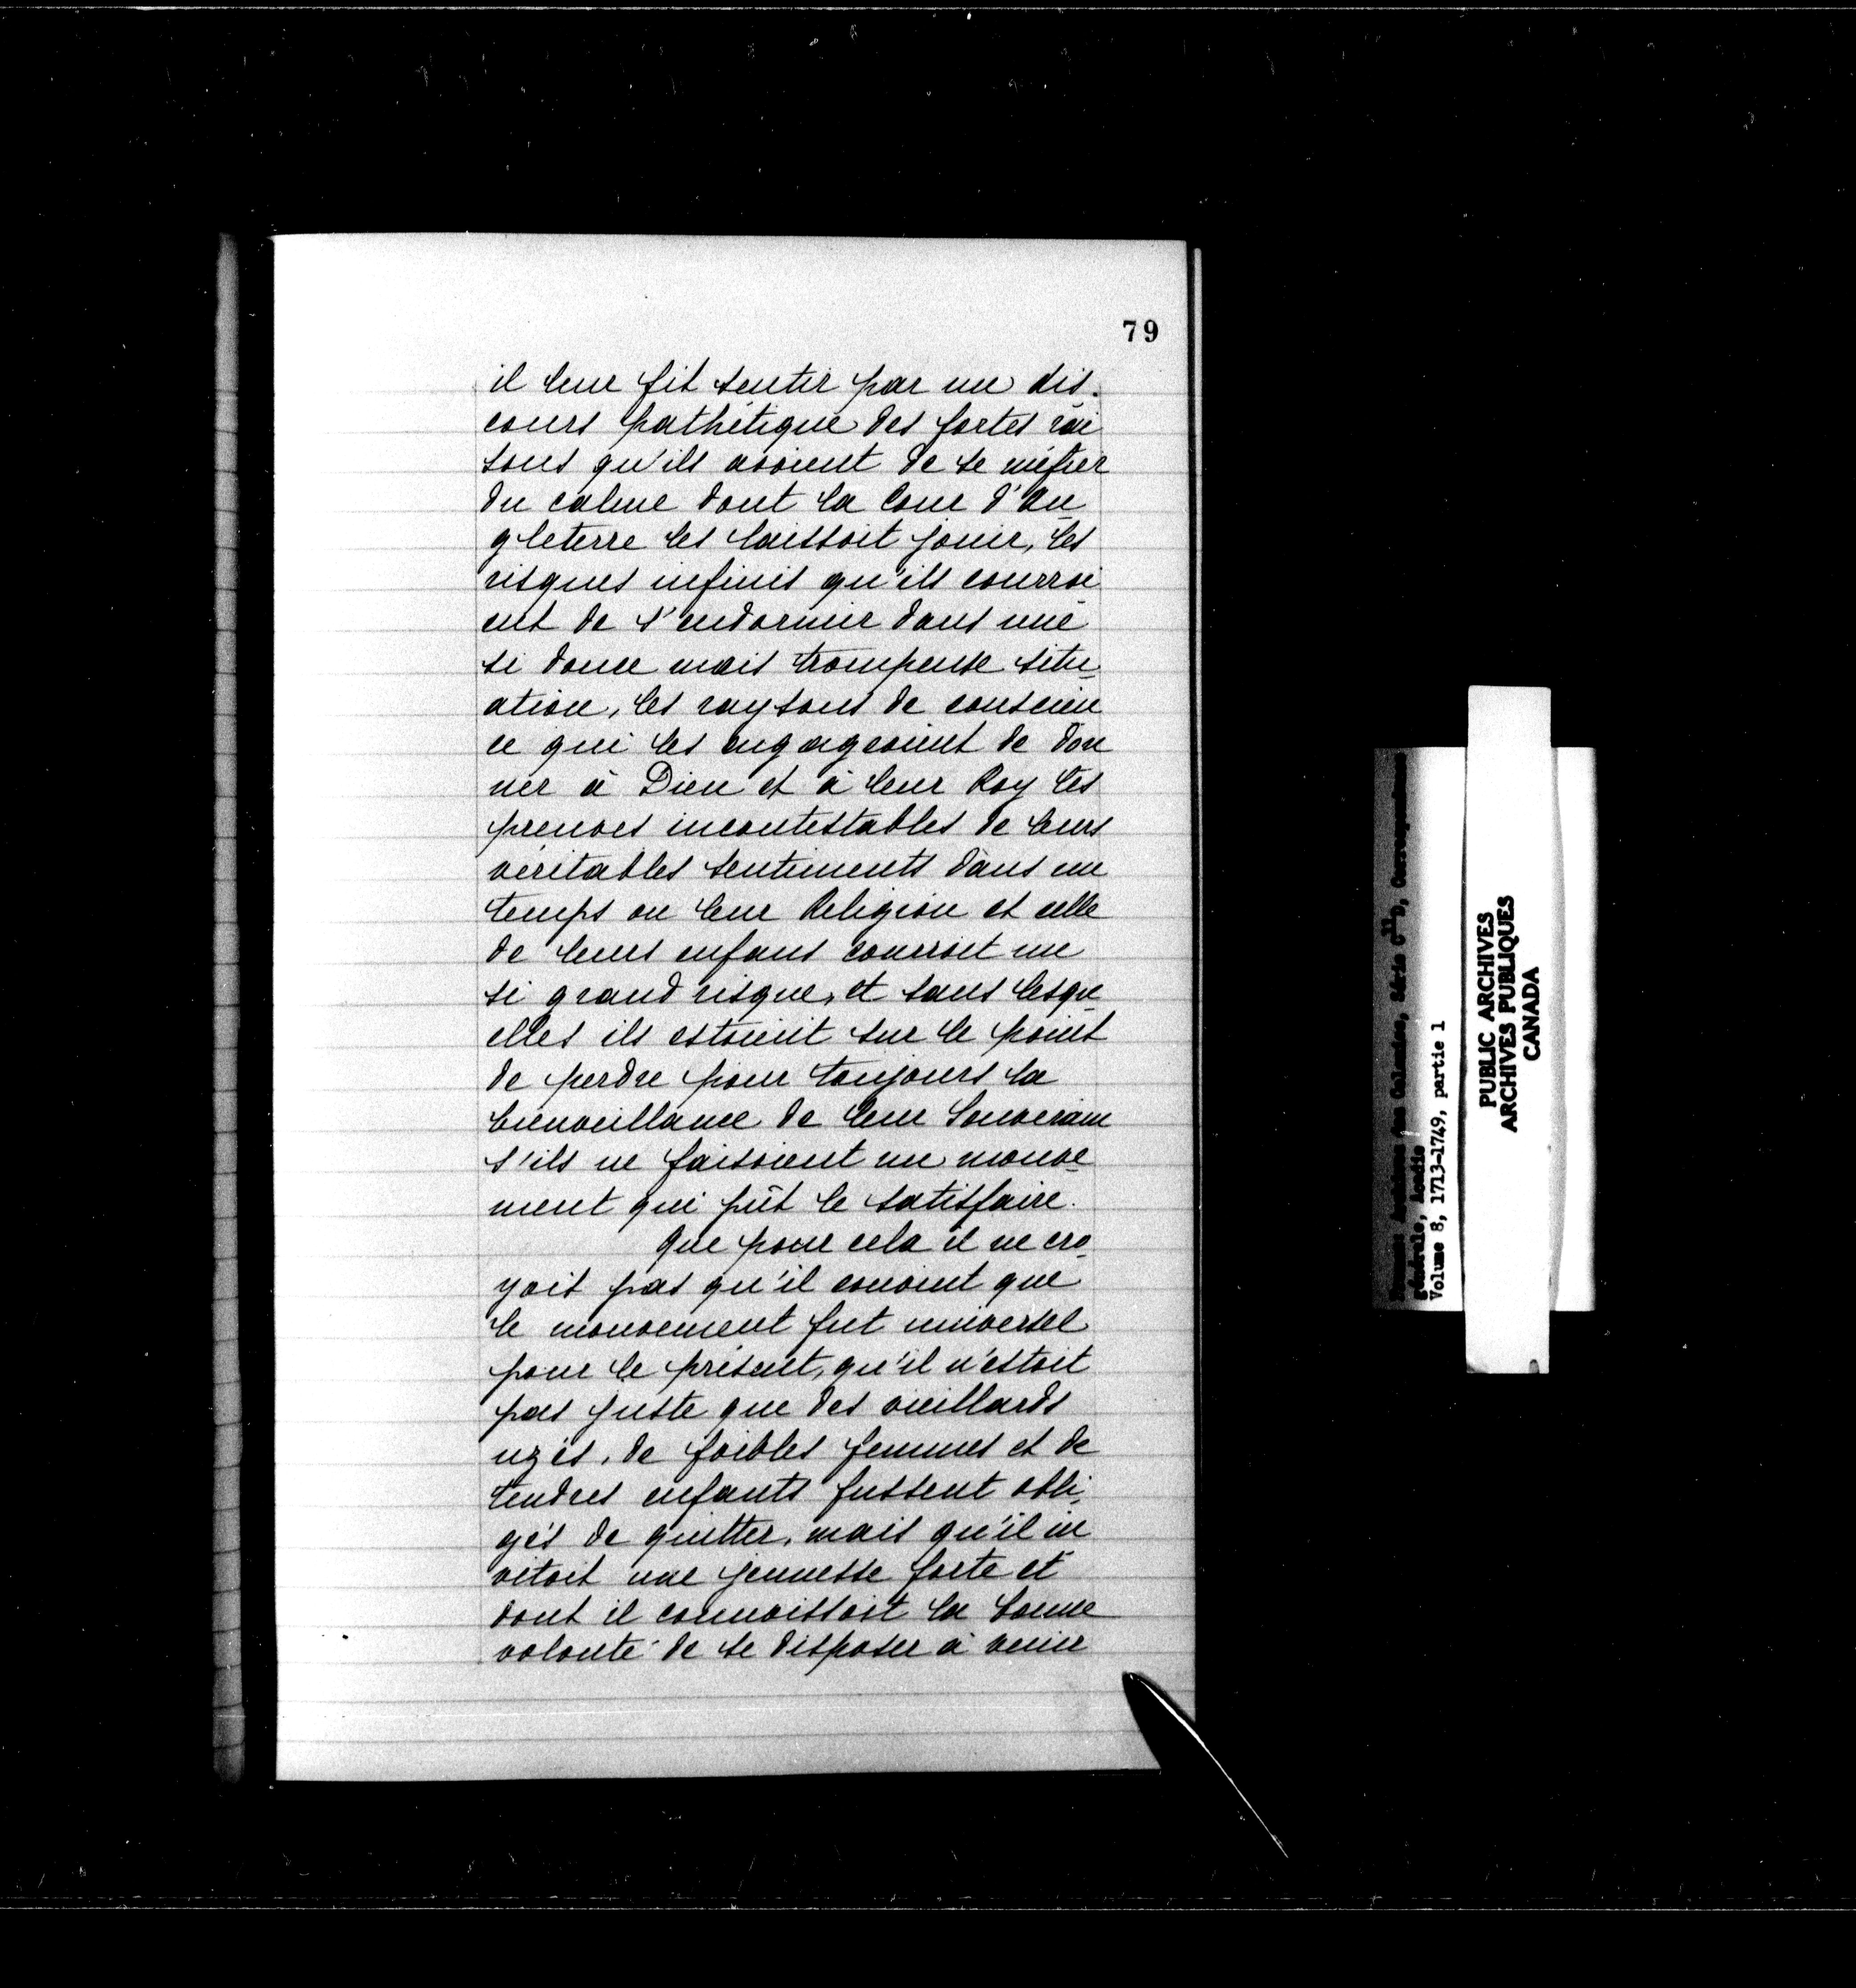 79
il leur fit sentir par un dis-
cours pathétique des fortes rai
sons qu'ils avoient de se méfier
du calme dont la Cour d'An
gleterre les laissoit jouir, les
risques infinis qu'ils courroi
ent de s'endormir dans une
si douce mais trompeuse situ
ation, les raysons de conscien
ce qui les engageoient de don
ner à Dieu et à leur Roy les
preuves incontestables de leurs
véritables sentiments dans un
temps ou leur Religion et celle
de leurs enfans courroit un
si grand risque, et sans lesqu
elles ils estoient sur le point
de perdre pour toujours la
bienveillance de leur Souverain
s'ils ne faisoient un mouve
ment qui pût le satisfaire.
Que pour cela il ne cro
yoit pas qu'il convint que
le mouvement fut universel
pour le présent, qu'il n'estoit
pas juste que des vieillards
uzés, de foibles femmes et de
tendres enfants fussent obli
gés de quitter, mais qu'il in
vitoit une jeunesse forte et
dont il connoissoit la bonne
volonté de se disposer à venir
Archives des Colonies, Série C11D, Correspondance
générale, Acadie
Volume 8, 1713-1749, partie 1
PUBLIC ARCHIVES
ARCHIVES PUBLIQUES
CANADA